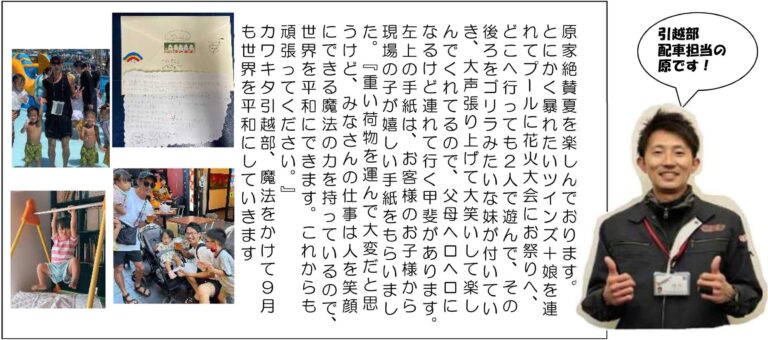 引越部
配車担当の
原です！
原家絶賛夏を楽しんでおります。
とにかく暴れたいツインズ＋娘を連
れてプールに花火大会にお祭りへ、
どこへ行っても２人で遊んで、その
後ろをゴリラみたいな妹が付いてい
き、大声張り上げて大笑いして楽し
んでくれてるので、父母ヘロヘロに
なるけど連れて行く甲斐があります。
左上の手紙は、お客様のお子様から
現場の子が嬉しい手紙をもらいまし
た。『重い荷物を運んで大変だと思
うけど、みなさんの仕事は人を笑顔
にできる魔法の力を持っているので、
世界を平和にできます。これからも
頑張ってください。』
カワキタ引越部、魔法をかけて９月
も世界を平和にしていきます